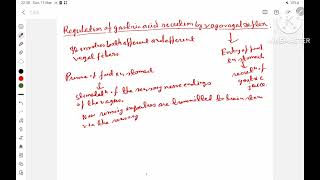 Regulation of gastric acid secretion by vagovagal reflex
It involves both afferent and efferent
vagal fibers
Presence of food in stomach
↓
Stimulatn of the sensory nerve endings
of the vagus.
Now sensory impulses are transmitted to brain stem
via the sensory
Entry of food
in stomach
↓
secretn of
gastric
juice.